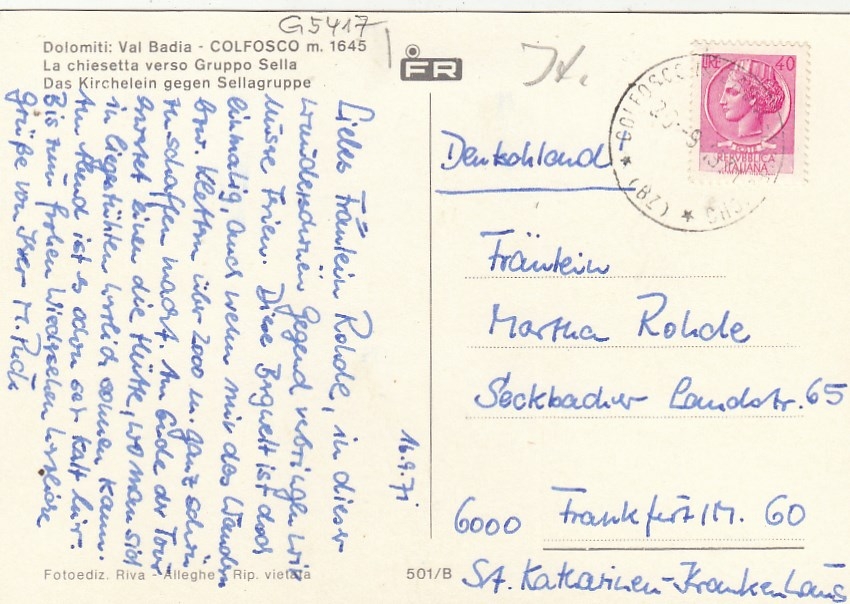 G5417
Dolomiti: Val Badia - COLFOSCO m. 1645
La chiesetta verso Gruppo Sella
Das Kirchelein gegen Sellagruppe
FR
LIRE 40
POSTE
REPVBBLICA
ITALIANA
COLFOSCO
(BZ)
16.9.71
Liebes Fräulein Rohde, in dieser
wunderschönen Gegend verbringen wir
unsere Ferien. Diese Bergwelt ist doch
einmalig, auch wenn mir das Wandern
bzw. Klettern über 2000 m. ganz schön
zu schaffen macht. Am Ende der Tour
wartet einen die Hütte, wo man sich
in Liegestühlen herrlich sonnen kann.
Am Abend ist es schon sehr kalt hier.
Bis zum frohen Wiedersehen herzliche
Grüße von Ihrer M.
Deutschland
Fräulein
Martha Rohde
Seckbacher Landstr. 65
6000 Frankfurt/M. 60
St. Katharinen-Krankenhaus
Fotoediz. Riva - Alleghe - Rip. vietata
501/B